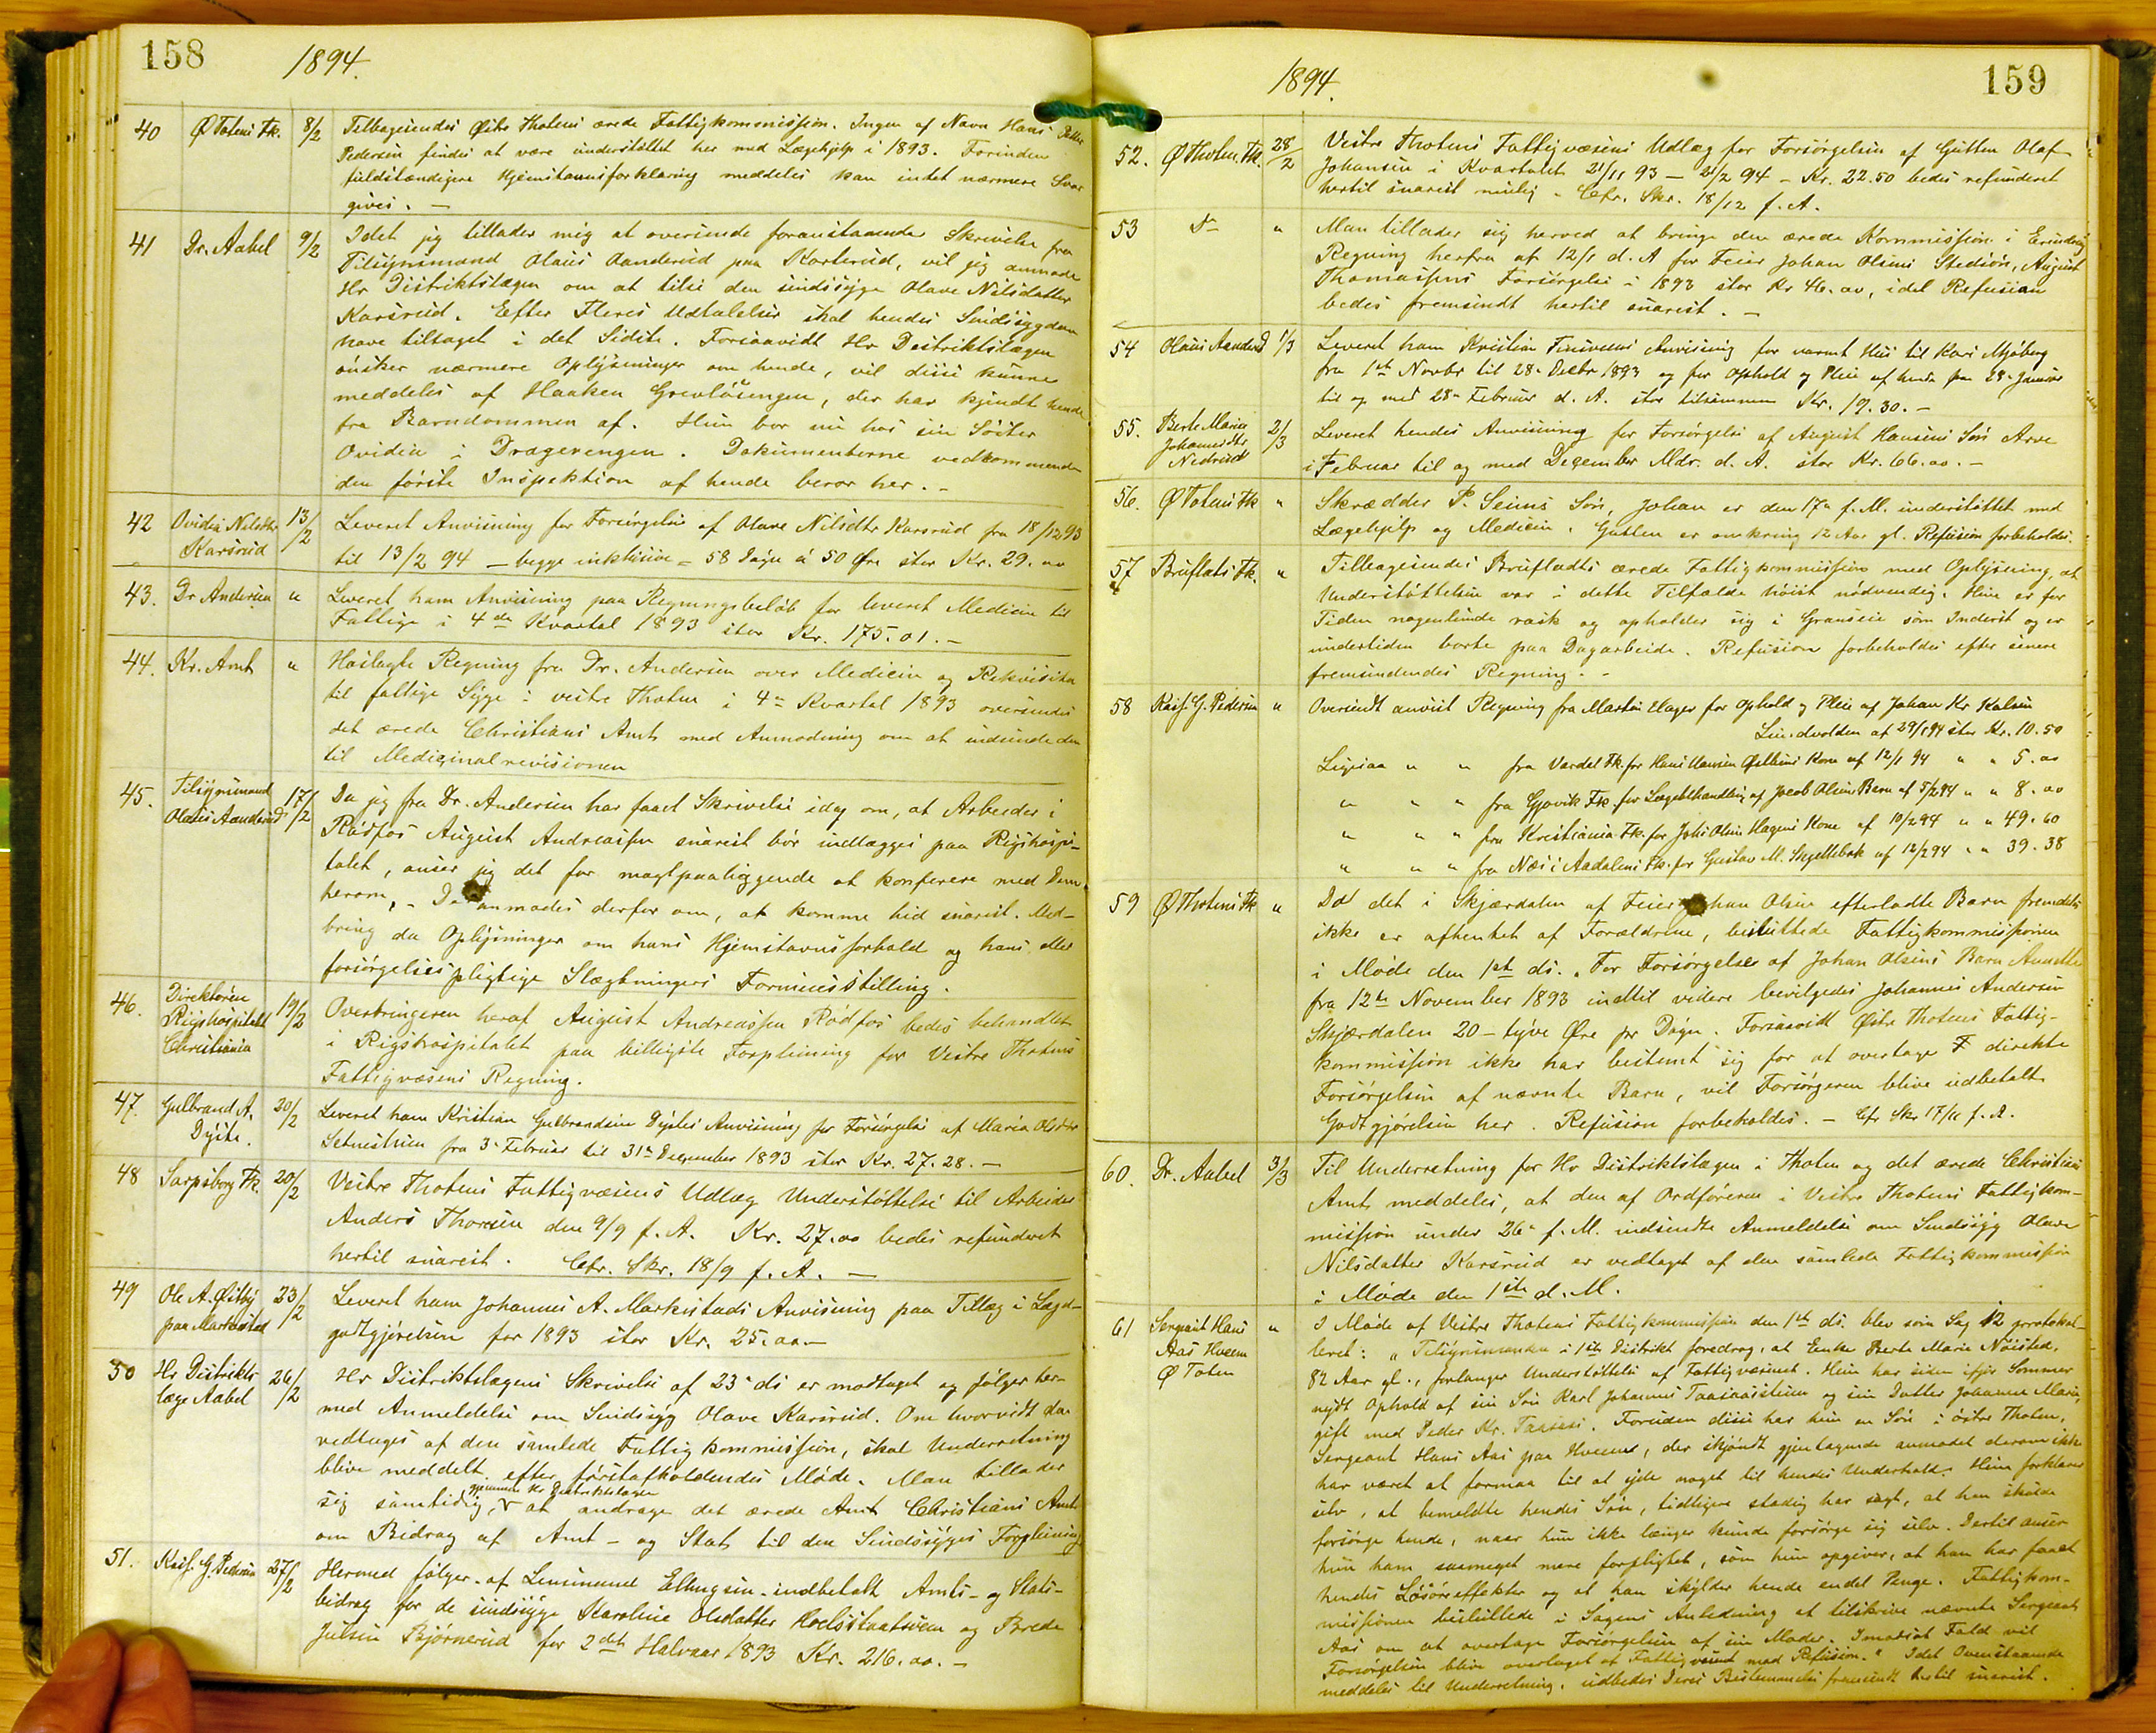 158
1894.
40 Ø Totens Fk. 8/2 Tilbagesendes Østre Thotens ærede Fattigkommission. Ingen af Navn Hans Petter
Pedersen findes at være understøttet her med Lægehjelp i 1893. Forinden
fuldstændigere Hjemstavnsforklaring meddeles kan intet nærmere Svar
gives. —
41 Dr. Aabel 9/2 Idet jeg tillader mig at oversende foranstaaende Skrivelse fra
Tilsynsmand Olaus Aanderud paa Karsrud, vil jeg anmode
Hr Distriktslægen om at tilse den sindssyge Olave Nilsdatter
Karsrud. Efter Fleres Udtalelser skal hendes Sindssygdom
have tiltaget i det Sidste. Forsaavidt Hr Distriktslægen
ønsker nærmere Oplysninger om hende, vil disse kunne
meddeles af Haaken Grevløsengen, der har kjendt hende
fra Barndommen af. Hun bor nu hos sin Søster
Ovidia i Dragerengen. Dokumenterne vedkommende
den første Inspektion af hende beror her. —
42 Ovidia Nilsdtr Karsrud 13/2 Leveret Anvisning for Forsørgelse af Olave Nilsdtr Karsrud fra 18/12 93
til 13/2 94 — begge inklusive = 58 Døgn á 50 Øre stor Kr. 29.00
43. Dr Andersen " Leveret ham Anvisning paa Regningsbeløb for leveret Medicin til
Fattige i 4de Kvartal 1893 stor Kr. 175.01. —
44. Kr. Amt " Hoslagte Regning fra Dr. Andersen over Medicin og Rekvisita
til fattige Syge i vestre Thoten i 4de Kvartal 1893 oversendes
det ærede Christians Amt med Anmodning om at indsende den
til Medicinalrevisionen
45. Tilsynsmand Olaus Aanderud 17/2 Da jeg fra Dr. Andersen har faaet Skrivelse idag om, at Arbeider i
Rødfos August Andreassen snarest bør indlægges paa Rigshospi-
talet, anser jeg det for magtpaaliggende at konferere med Dem
herom, — De anmodes derfor om, at komme hid snarest. Med-
bring da Oplysninger om hans Hjemstavnsforhold og hans eller
forsørgelsespligtige Slægtningers Formuesstilling.
46. Direktøren Rigshospitalet Christiania 19/2 Overbringeren heraf August Andreassen Rødfos bedes behandlet
i Rigshospitalet paa billigste Forpleining for Vestre Thotens
Fattigvæsens Regning.
47. Gulbrand A. Dyste. 20/2 Leveret ham Kristian Gulbrandsen Dystes Anvisning for Forsørgelse af Maria Olsdtr
fra 3' Februar til 31te December 1893 stor Kr. 27.28. —
48 Sarpsborg Fk. 20/2 Vestre Thotens Fattigvæsens Udlæg Understøttelse til Arbeider
Anders Thoresen den 9/9 f. A. Kr. 27.00 bedes refunderet
hertil snarest. Cfr. Skr. 18/9 f. A. —
49 Ole A. Østby paa Markestad 23/2 Leveret ham Johannes A. Markestads Anvisning paa Tillæg i Lægd-
godtgjørelsen for 1893 stor Kr. 25.00. —
50 Hr Distriktslæge Aabel 26/2 Hr Distriktslægens Skrivelse af 23' ds er modtaget og følger her-
med Anmeldelse om Sindssyg Olave Karsrud. Om hvorvidt den
vedtages af den samlede Fattigkommission, skal Underretning
blive meddelt efter førstafholdendes Møde. Man tillader
gjennem Hr Distriktslægen
sig samtidig, at andrage det ærede Amt Christians Amt
om Bidrag af Amt- og Stat til den Sindssyges Forpleining
51. Kass. G. Pedersen 27/2 Hermed følger af Lensmand Ellingsen indbetalt Amts- og Stats-
bidrag for de sindssyge Karoline Olsdatter og Brede
Julsen Bjørnerud for 2det Halvaar 1893 Kr. 216.00. —
1894.
159
52. Ø Thotens Fk. 28/2 Vestre Thotens Fattigvæsens Udlæg for Forsørgelsen af Gutten Olaf
Johansen i Kvartalet 21/11 93 — 21/2 94 — Kr. 22.50 bedes refunderet
hertil snarest mulig. Cfr. Skr. 18/12 f. A.
53 Do " Man tillader sig herved at bringe den ærede Kommission i Erindring
Regning herfra af 12/1 d. A for Feier Johan Olsens Stedsøn, August
Thomassens Forsørgelse i 1893 stor Kr 46.00, idet Refusion
bedes fremsendt hertil snarest. —
54 Olaus Aanderud 1/3 Leveret ham Kristian Anvisning for varmt Hus til Kari Mjøberg
fra 1ste Novbr til 28. Decbr 1893 og for Ophold og Pleie af hende fra 28. Januar
til og med 28. Februar d. A. stor tilsammen Kr. 19.30. —
55. Berte Marie Johannesdtr Nedrud 2/3 Leveret hendes Anvisning for Forsørgelse af August Hansens Søn Arve
i Februar til og med December Mdr. d. A. stor Kr. 66.00. —
56. Ø Totens Fk " Skrædder P. Seims Søn, Johan er den 17. f. M. understøttet med
Lægehjelp og Medicin. Gutten er omkring 12 Aar gl. Refusion forbeholdes.
57 Bruflats Fk. " Tilbagesendes Brufladts ærede Fattigkommission med Oplysning, at
Understøttelsen var i dette Tilfælde høist nødvendig. Hun er for
Tiden nogenlunde rask og opholder sig i Granseie som Inderst og er
undertiden borte paa Dagarbeide. Refusion forbeholdes efter senere
fremsendendes Regning. —
58 Kass. G. Pedersen " Oversendt anvist Regning fra Martin Hager for Ophold og Pleie af Johan Kr
Lundvolden af 29/1 94 stor Kr. 10.50
Ligesaa " " fra Vardal Fk. for Hans Hansen Østbens Kone af 12/1 94 " " 5.00
" " " fra Gjøvik Fk. for Lægebehandling af Jacob Olsens Barn af 5/2 94 " " 8.00
" " " fra Kristiania Fk. for Johs Olsen Hagens Kone af 10/2 94 " " 49.60
" " " fra Næs i Aadalens Fk. for Gustav M. af 12/2 94 " " 39.38
59 Ø Thotens Fk " Da det i Skjærdalen af Feier Johan Olsen efterladte Barn fremdeles
ikke er afhentet af Forældrene, besluttede Fattigkommissionen
i Møde den 1ste ds. „For Forsørgelse af Johan Olsens Barn Annette
fra 12te November 1893 indtil videre bevilgedes Johannes Andersen
Skjærdalen 20 — tyve Øre pr Døgn. Forsaavidt Østre Thotens Fattig-
kommission ikke har bestemt sig for at overtage direkte
Forsørgelsen af nævnte Barn, vil Forsørgeren blive udbetalt
Godtgjørelsen her. Refusion forbeholdes. — Cfr Skr 17/11 f. A.
60. Dr. Aabel 3/3 Til Underretning for Hr Distriktslægen i Thoten og det ærede Christians
Amt meddeles, at den af Ordføreren i Vestre Thotens Fattigkom-
mission under 26' f. M. indsendte Anmeldelse om Sindssyg Olave
Nilsdatter Karsrud er vedtaget af den samlede Fattigkommission
i Møde den 1ste d. M.
61 Sergeant Hans Aas Hveem Ø Toten " I Møde af Vestre Thotens Fattigkommission den 1ste ds. blev som Sag 12 protokol-
leret: „Tilsynsmanden i 1ste Distrikt foredrog, at Enke Berte Marie Nøisted,
82 Aar gl., forlanger Understøttelse af Fattigvæsenet. Hun har siden ifjor Sommer
nydt Ophold af sin Søn Karl Johannes og sin Datter Johanne Marie,
gift med Peder Kr. Foruden disse har hun en Søn i østre Thoten,
Sergeant Hans Aas paa Hveem, der skjøndt gjentagende anmodet derom ikke
har været at formaa til at yde noget til hendes Underhold. Hun forklarer
selv, at bemeldte hendes Søn, tidligere stadig har sagt, at han skulde
forsørge hende, naar hun ikke længer kunde forsørge sig selv. Dertil anser
hun ham saameget mere forpligtet, som hun opgiver, at han har faaet
hendes Løsøreeffekter og at han skylder hende endel Penge. Fattigkom-
missionen besluttede i Sagens Anledning at tilskrive nævnte Sergeant
Aas om at overtage Forsørgelsen af sin Moder. I modsat Fald vil
Forsørgelsen blive overtaget af Fattigvæsenet med Refusion." Idet Ovenstaaende
meddeles til Underretning, udbedes Deres Bestemmelse fremsendt hertil snarest.